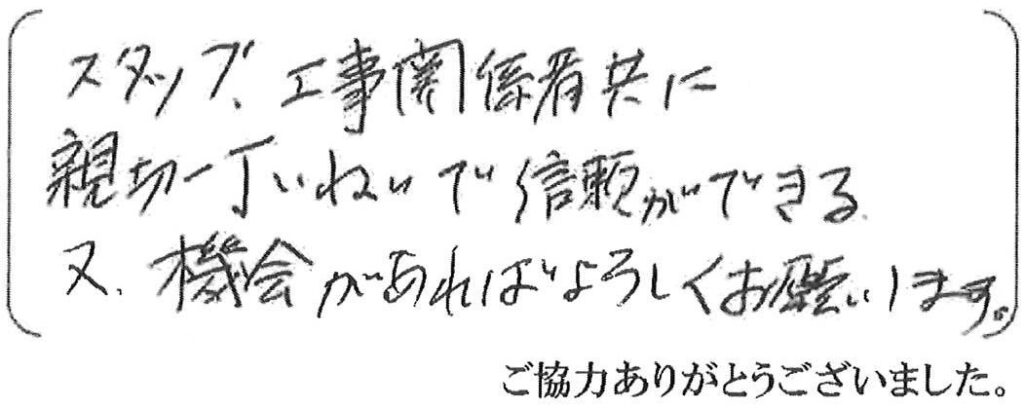 スタッフ、工事関係者共に
親切一丁いねいで信頼ができる
又、機会があればよろしくお願いします。
ご協力ありがとうございました。